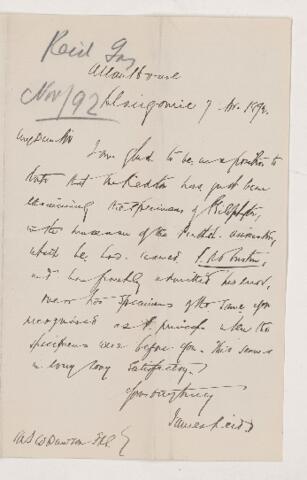 Reid Jas
Nov/92
Allan House
Blairgowrie 7 Nov. 1892.
My Dear Sir
I am glad to be in a position to
state that Mr Kidston have just been
examining the specimens of Psilophyton,
in the museum of the Perth
which he has named P. Robustius,
and has frankly admitted his error,
one or two specimens of the same you
recognised as P. princeps when the
specimens were before you. This seems
very satisfactory.
Yours very truly
James Reid